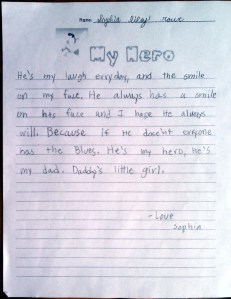 Name Sophia
My Hero
He's my laugh eveyday, and the smile
on my face. He always has a smile
on his face and I hope He always
will. Because if He does'nt everyone
has the Blues. He's my hero, he's
my dad. Daddy's little girl.
- Love
Sophia